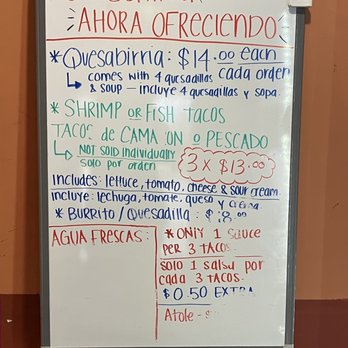 AHORA OFRECIENDO
* Quesabirria: $14.00 each
↳ comes with 4 quesadillas cada orden
& soup – incluye 4 quesadillas y sopa.
* SHRIMP OR FISH TACOS
TACOS de CAMA ON O PESCADO
↳ NOT SOLD individually
solo por orden
3 x $13.00
Includes: lettuce, tomato, cheese & sour cream.
incluye: lechuga, tomate, queso y
* BURRITO/Quesadilla: $
AGUA FRESCAS:
* ONLY 1 SAUCE
PER 3 TACOS.
SOLO 1 SALSA POR
cada 3 TACOS.
$0.50 EXTRA
Atole -